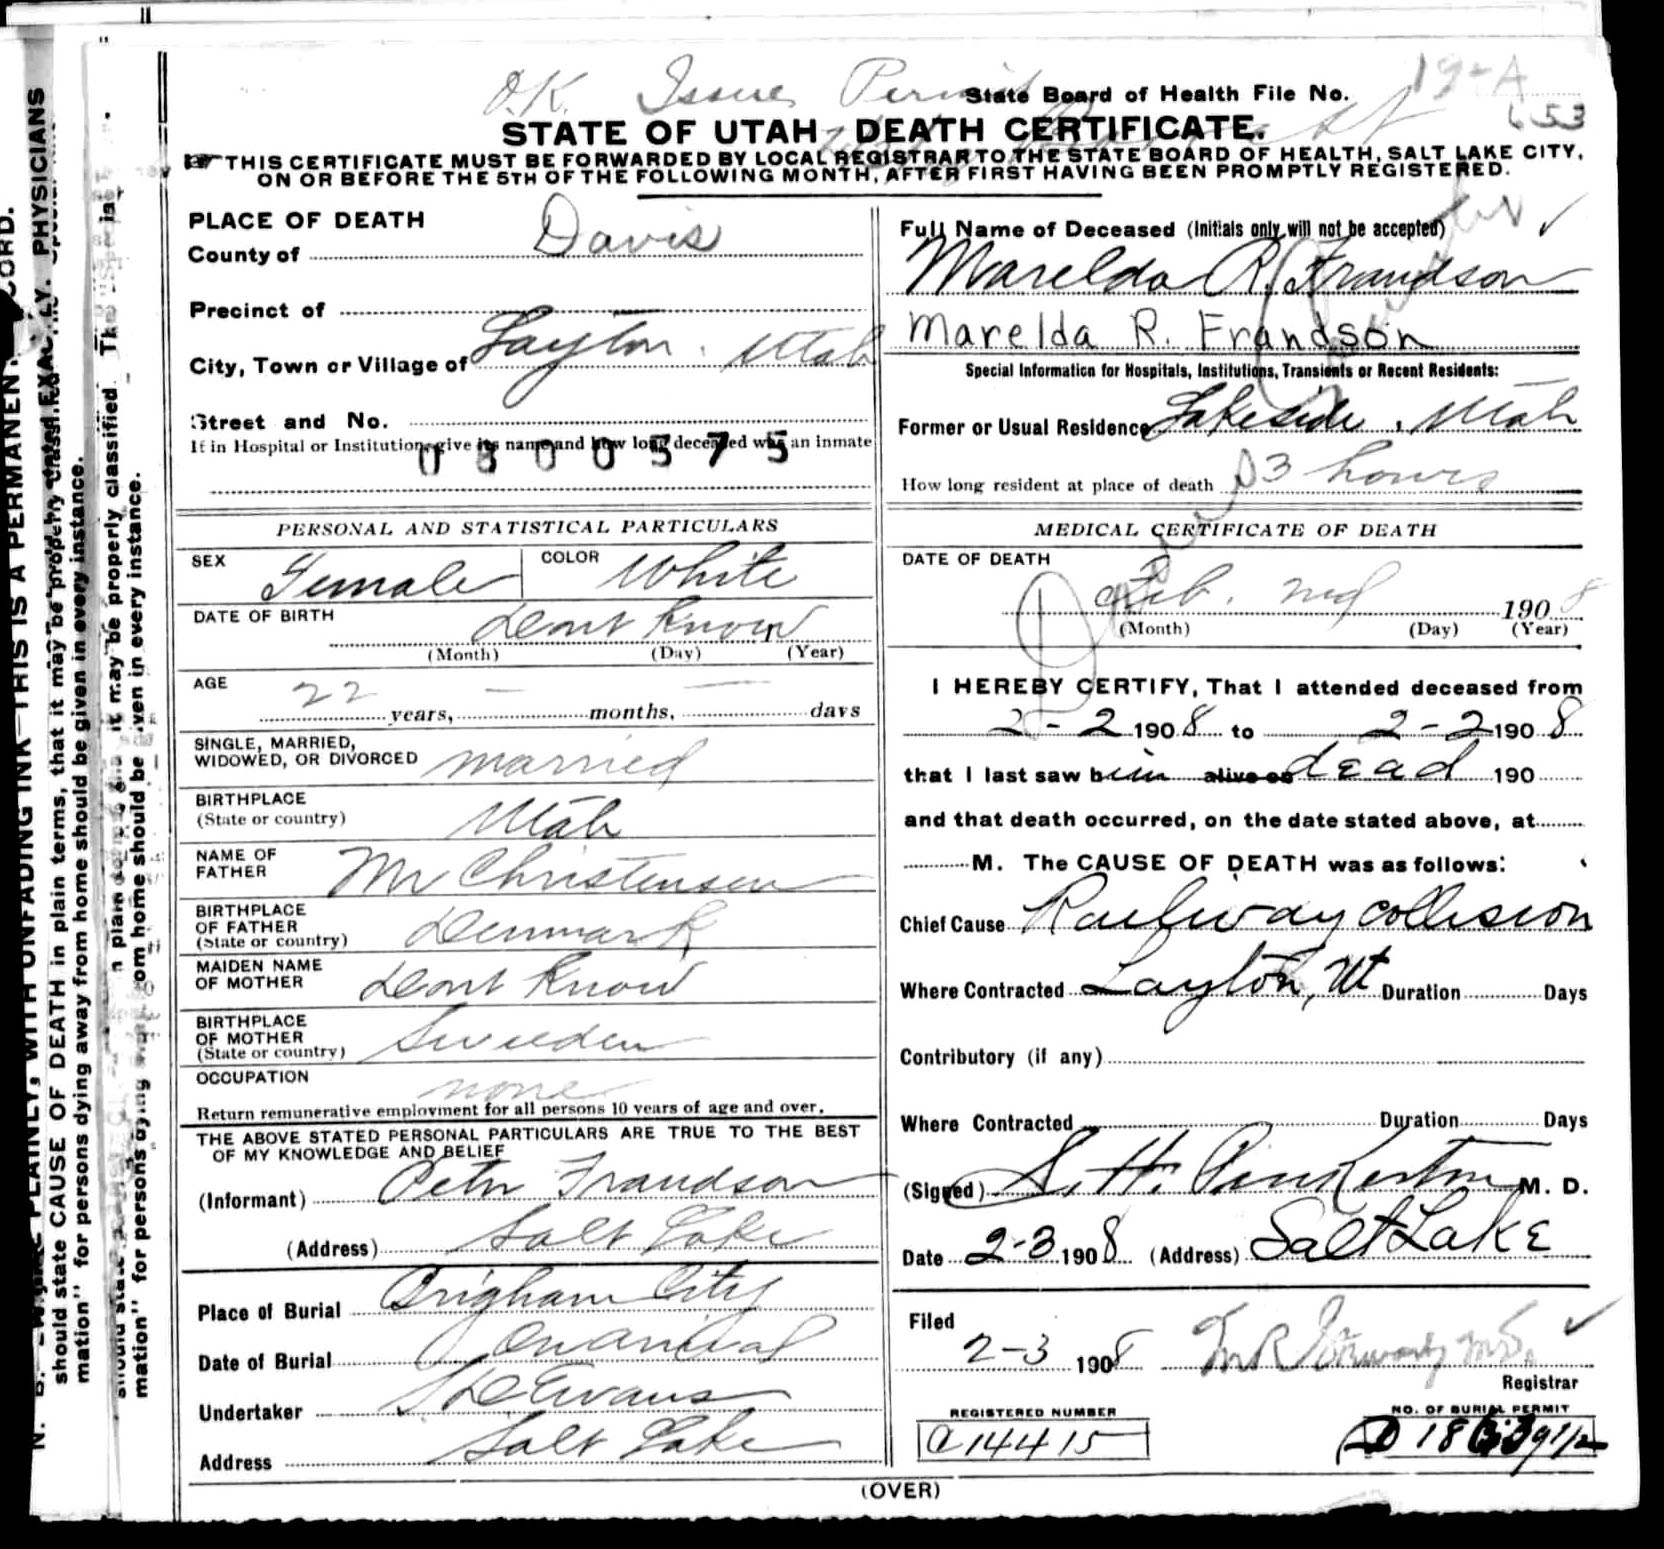 O.K. Issue Permit
State Board of Health File No. 19-A
653
STATE OF UTAH DEATH CERTIFICATE.
THIS CERTIFICATE MUST BE FORWARDED BY LOCAL REGISTRAR TO THE STATE BOARD OF HEALTH, SALT LAKE CITY,
ON OR BEFORE THE 5TH OF THE FOLLOWING MONTH, AFTER FIRST HAVING BEEN PROMPTLY REGISTERED.
PLACE OF DEATH
County of Davis
Precinct of
City, Town or Village of Layton, Utah
Street and No.
If in Hospital or Institution, give its name and how long deceased was an inmate
0800575
Full Name of Deceased (Initials only will not be accepted)
Marelda R. Frandson
Marelda R. Frandson
Special Information for Hospitals, Institutions, Transients or Recent Residents:
Former or Usual Residence Lakeside, Utah
How long resident at place of death 3 hours
PERSONAL AND STATISTICAL PARTICULARS
SEX Female COLOR White
DATE OF BIRTH Dont Know
(Month) (Day) (Year)
AGE 22 years, — months, — days
SINGLE, MARRIED,
WIDOWED, OR DIVORCED married
BIRTHPLACE
(State or country) Utah
NAME OF
FATHER Mr Christensen
BIRTHPLACE
OF FATHER
(State or country) Denmark
MAIDEN NAME
OF MOTHER Dont Know
BIRTHPLACE
OF MOTHER
(State or country) Sweeden
OCCUPATION none
Return remunerative employment for all persons 10 years of age and over.
THE ABOVE STATED PERSONAL PARTICULARS ARE TRUE TO THE BEST
OF MY KNOWLEDGE AND BELIEF
(Informant) Peter Frandson
(Address) Salt Lake
Place of Burial Brigham City
Date of Burial on arrival
Undertaker S D Evans
Address Salt Lake
MEDICAL CERTIFICATE OF DEATH
DATE OF DEATH
Feb. 2nd 1908
(Month) (Day) (Year)
I HEREBY CERTIFY, That I attended deceased from
2-2 1908 to 2-2 1908
that I last saw him alive on dead 190
and that death occurred, on the date stated above, at
M. The CAUSE OF DEATH was as follows:
Chief Cause Railway collision
Where Contracted Layton, Ut Duration Days
Contributory (if any)
Where Contracted Duration Days
(Signed) S. H. Pinkerton M. D.
Date 2-3 1908 (Address) Salt Lake
Filed
2-3 1908
Registrar
REGISTERED NUMBER
a14415
NO. OF BURIAL PERMIT
(OVER)
should state CAUSE OF DEATH in plain terms, that it may be properly classified
mation" for persons dying away from home should be given in every instance.
it may be properly classified. The
mation" for persons dying away from home should be given in every instance.